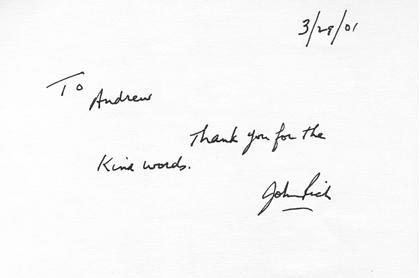 3/28/01
To
Andrew
Thank you for the
Kind words.
John Rich